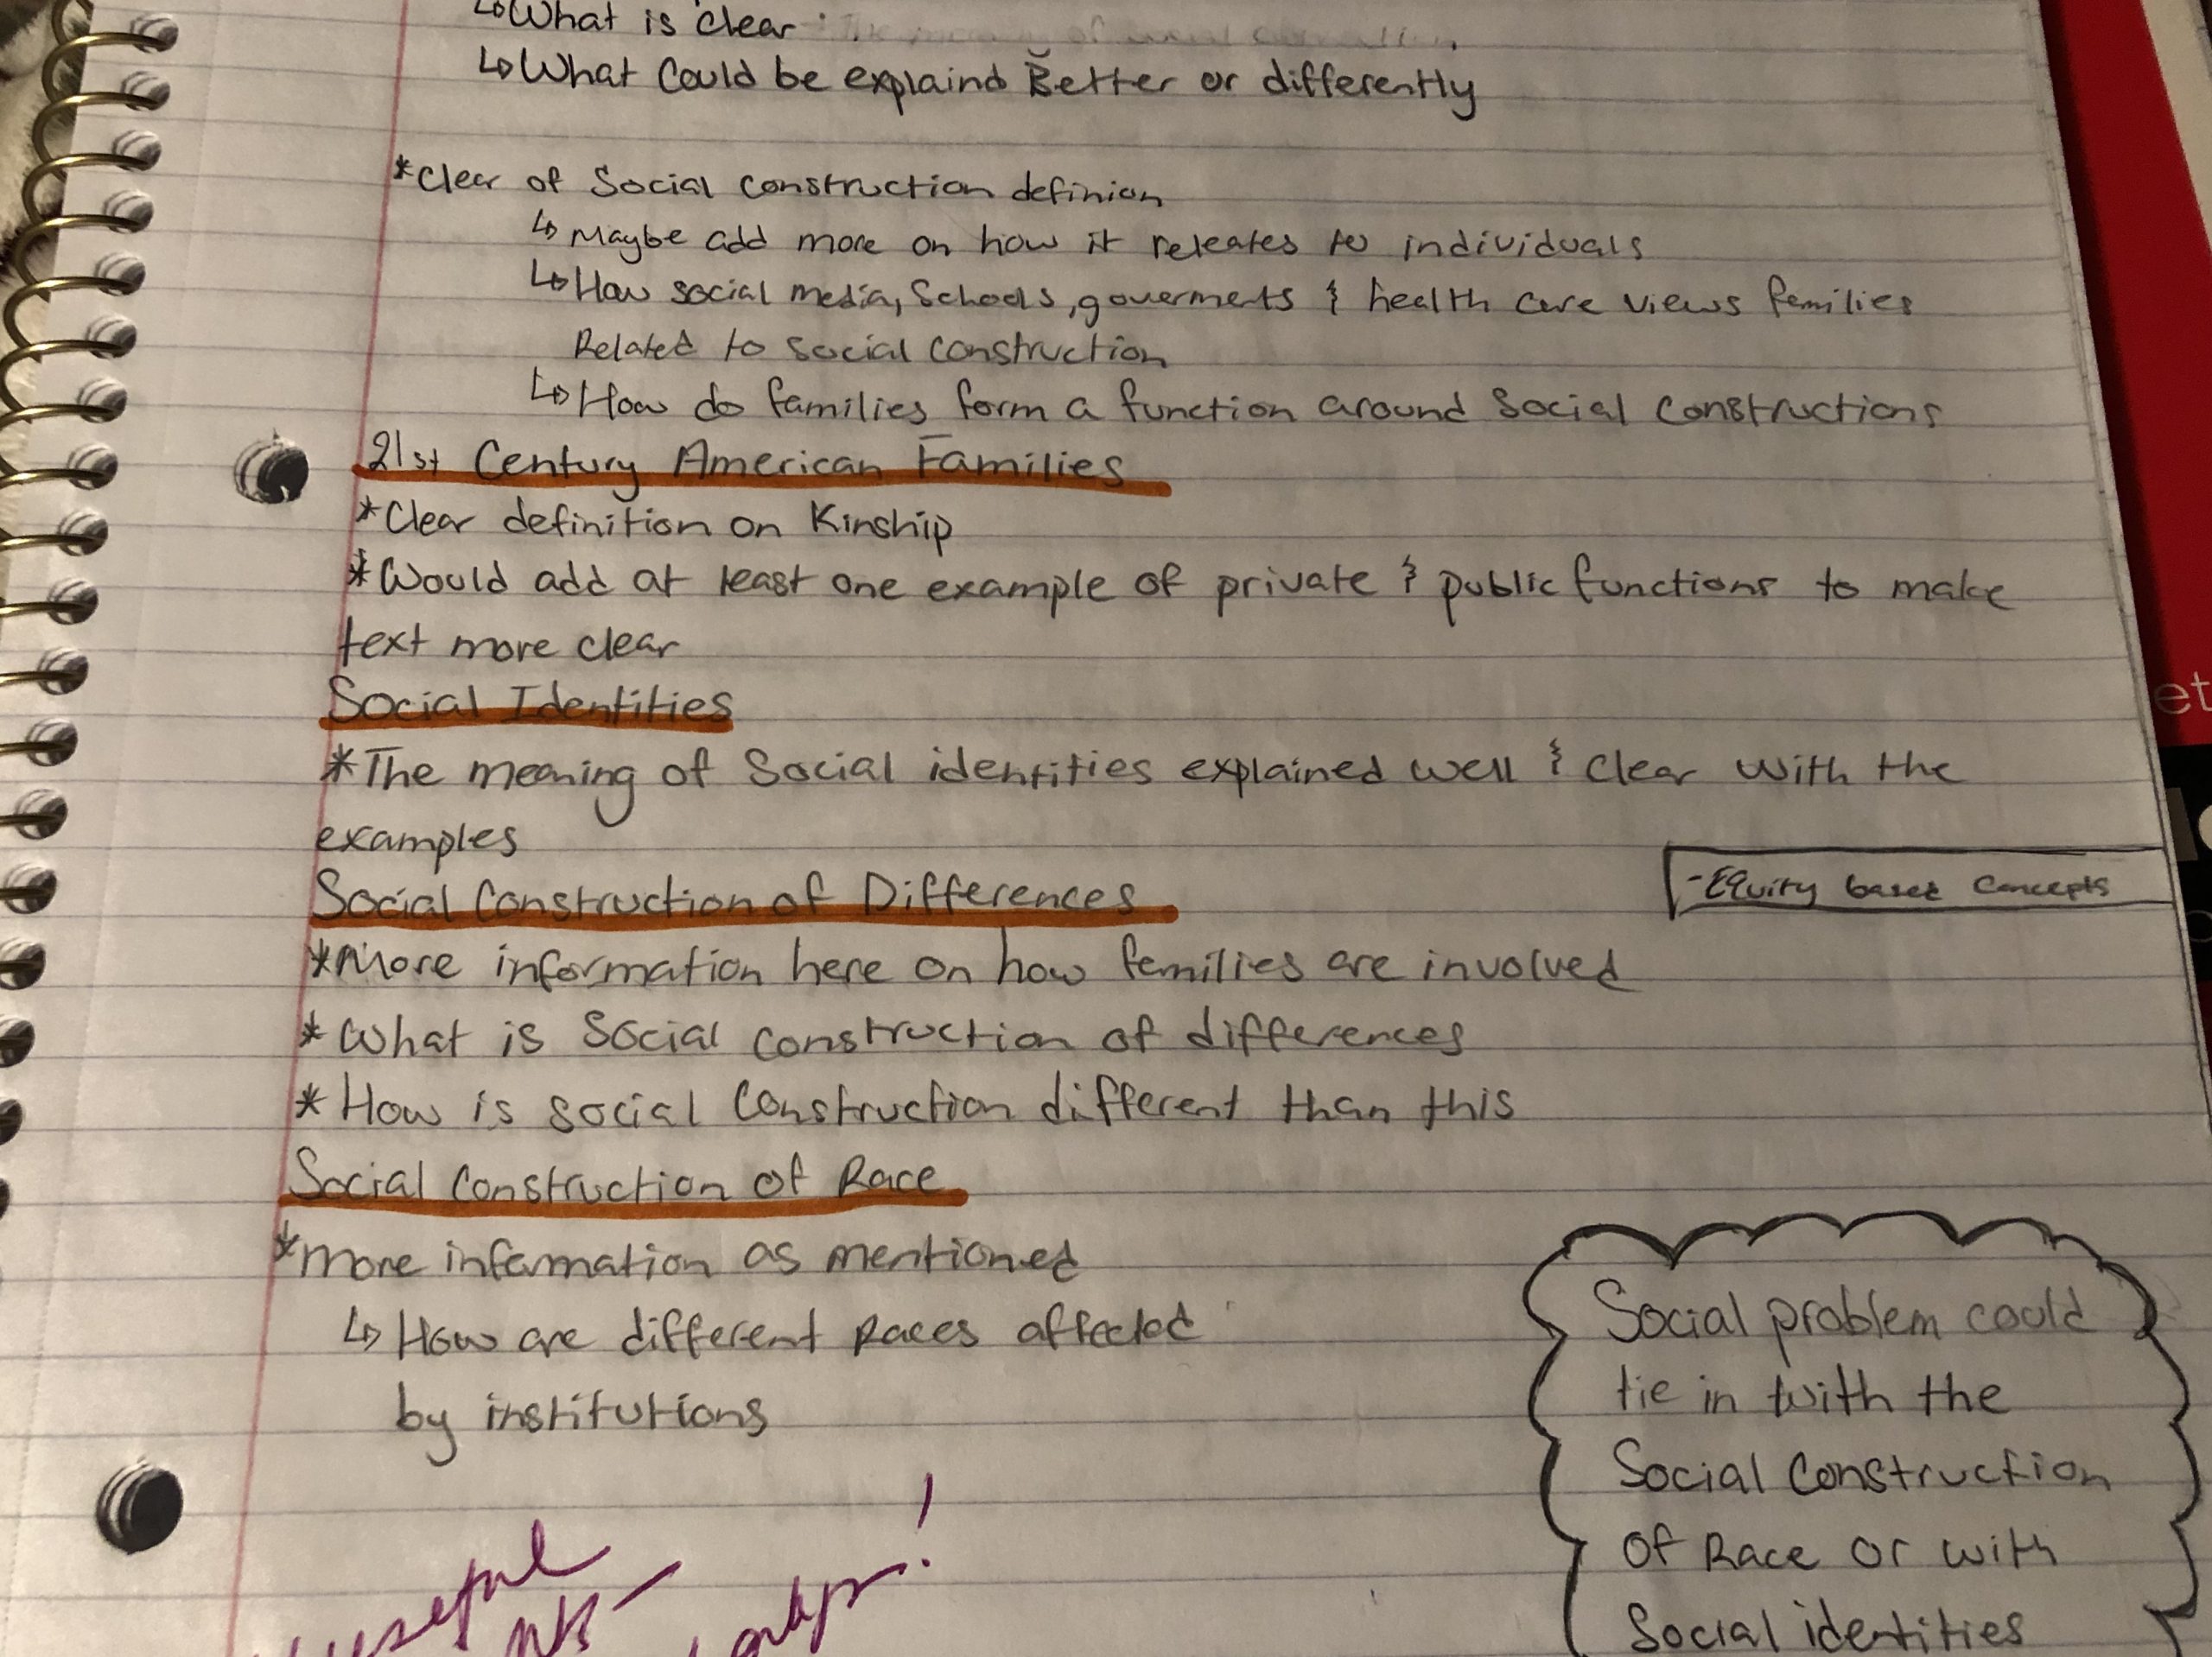 ↳What is clear
↳What Could be explaind Better or differently
*Clear of Social construction definion
↳Maybe add more on how it releates to individuals
↳How social media, Schools, goverments & health care views families
Related to social construction
↳How do families form a function around Social Constructions
21st Century American Families
*Clear definition on Kinship
*Would add at least one example of private & public functions to make
text more clear
Social Identities
*The meaning of Social identities explained well & clear with the
examples
Social Construction of Differences
-Equity based Concepts
*More information here on how families are involved
*What is Social construction of differences
*How is social construction different than this
Social Construction of Race
*More information as mentioned
↳How are different Races affected
by institutions
Social problem could
tie in with the
Social Construction
Of Race or with
Social identities
useful
et